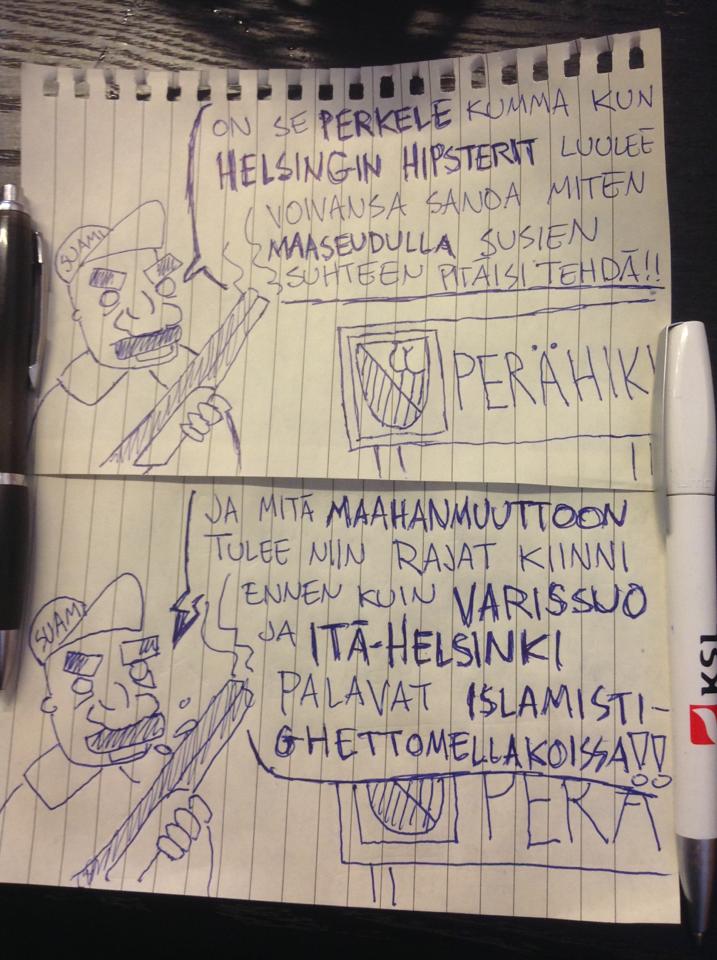 ON SE PERKELE KUMMA KUN
HELSINGIN HIPSTERIT LUULEE
VOIVANSA SANOA MITEN
MAASEUDULLA SUSIEN
SUHTEEN PITÄISI TEHDÄ!!
SUAMI
PERÄHIKI
JA MITÄ MAAHANMUUTTOON
TULEE NIIN RAJAT KIINNI
ENNEN KUIN VARISSUO
JA ITÄ-HELSINKI
PALAVAT ISLAMISTI-
GHETTOMELLAKOISSA!!
SUAMI
PERÄ
KSL